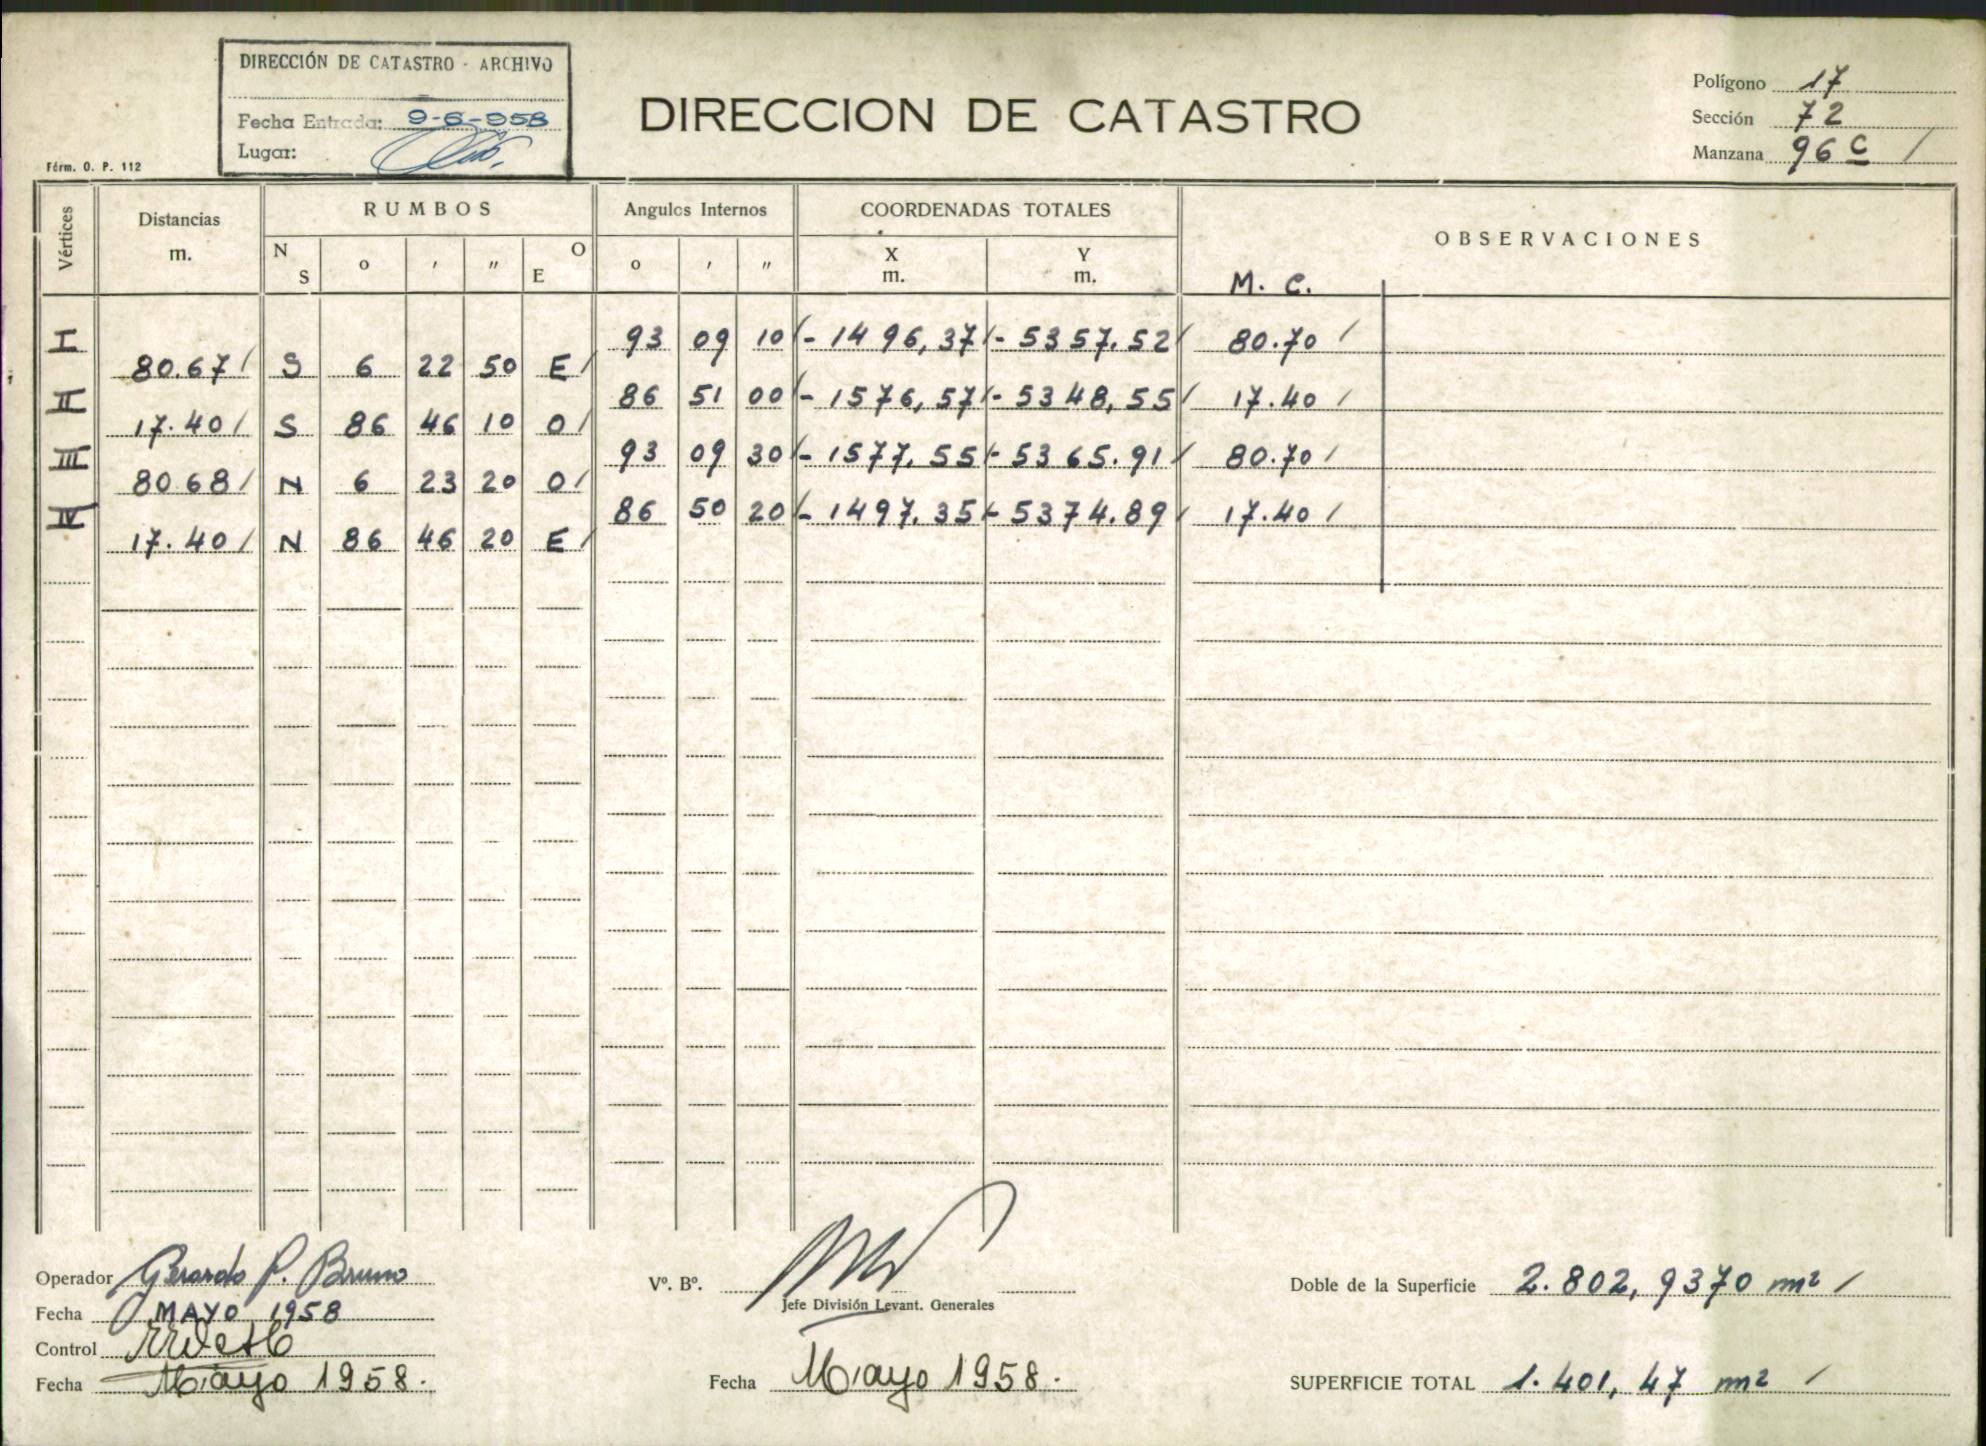 DIRECCIÓN DE CATASTRO - ARCHIVO
Fecha Entrada: 9-6-958
Lugar:
Fórm. O. P. 112
DIRECCION DE CATASTRO
Polígono 17
Sección 72
Manzana 96 C /
Vértices Distancias m. RUMBOS Angulos Internos COORDENADAS TOTALES OBSERVACIONES
N S o ' " E O o ' " X m. Y m. M. C.
I 93 09 10 - 1496,37 - 5357,52 80.70
80.67 S 6 22 50 E
II 86 51 00 - 1576,57 - 5348,55 17.40
17.40 S 86 46 10 O
III 93 09 30 - 1577,55 - 5365.91 80.70
80 68 N 6 23 20 O
IV 86 50 20 - 1497,35 - 5374.89 17.40
17.40 N 86 46 20 E
Operador Gerardo P. Bruno
Fecha MAYO 1958
Control
Fecha Mayo 1958.
Vº. Bº.
Jefe División Levant. Generales
Fecha Mayo 1958.
Doble de la Superficie 2.802,9370 m² /
SUPERFICIE TOTAL 1.401,47 m² /